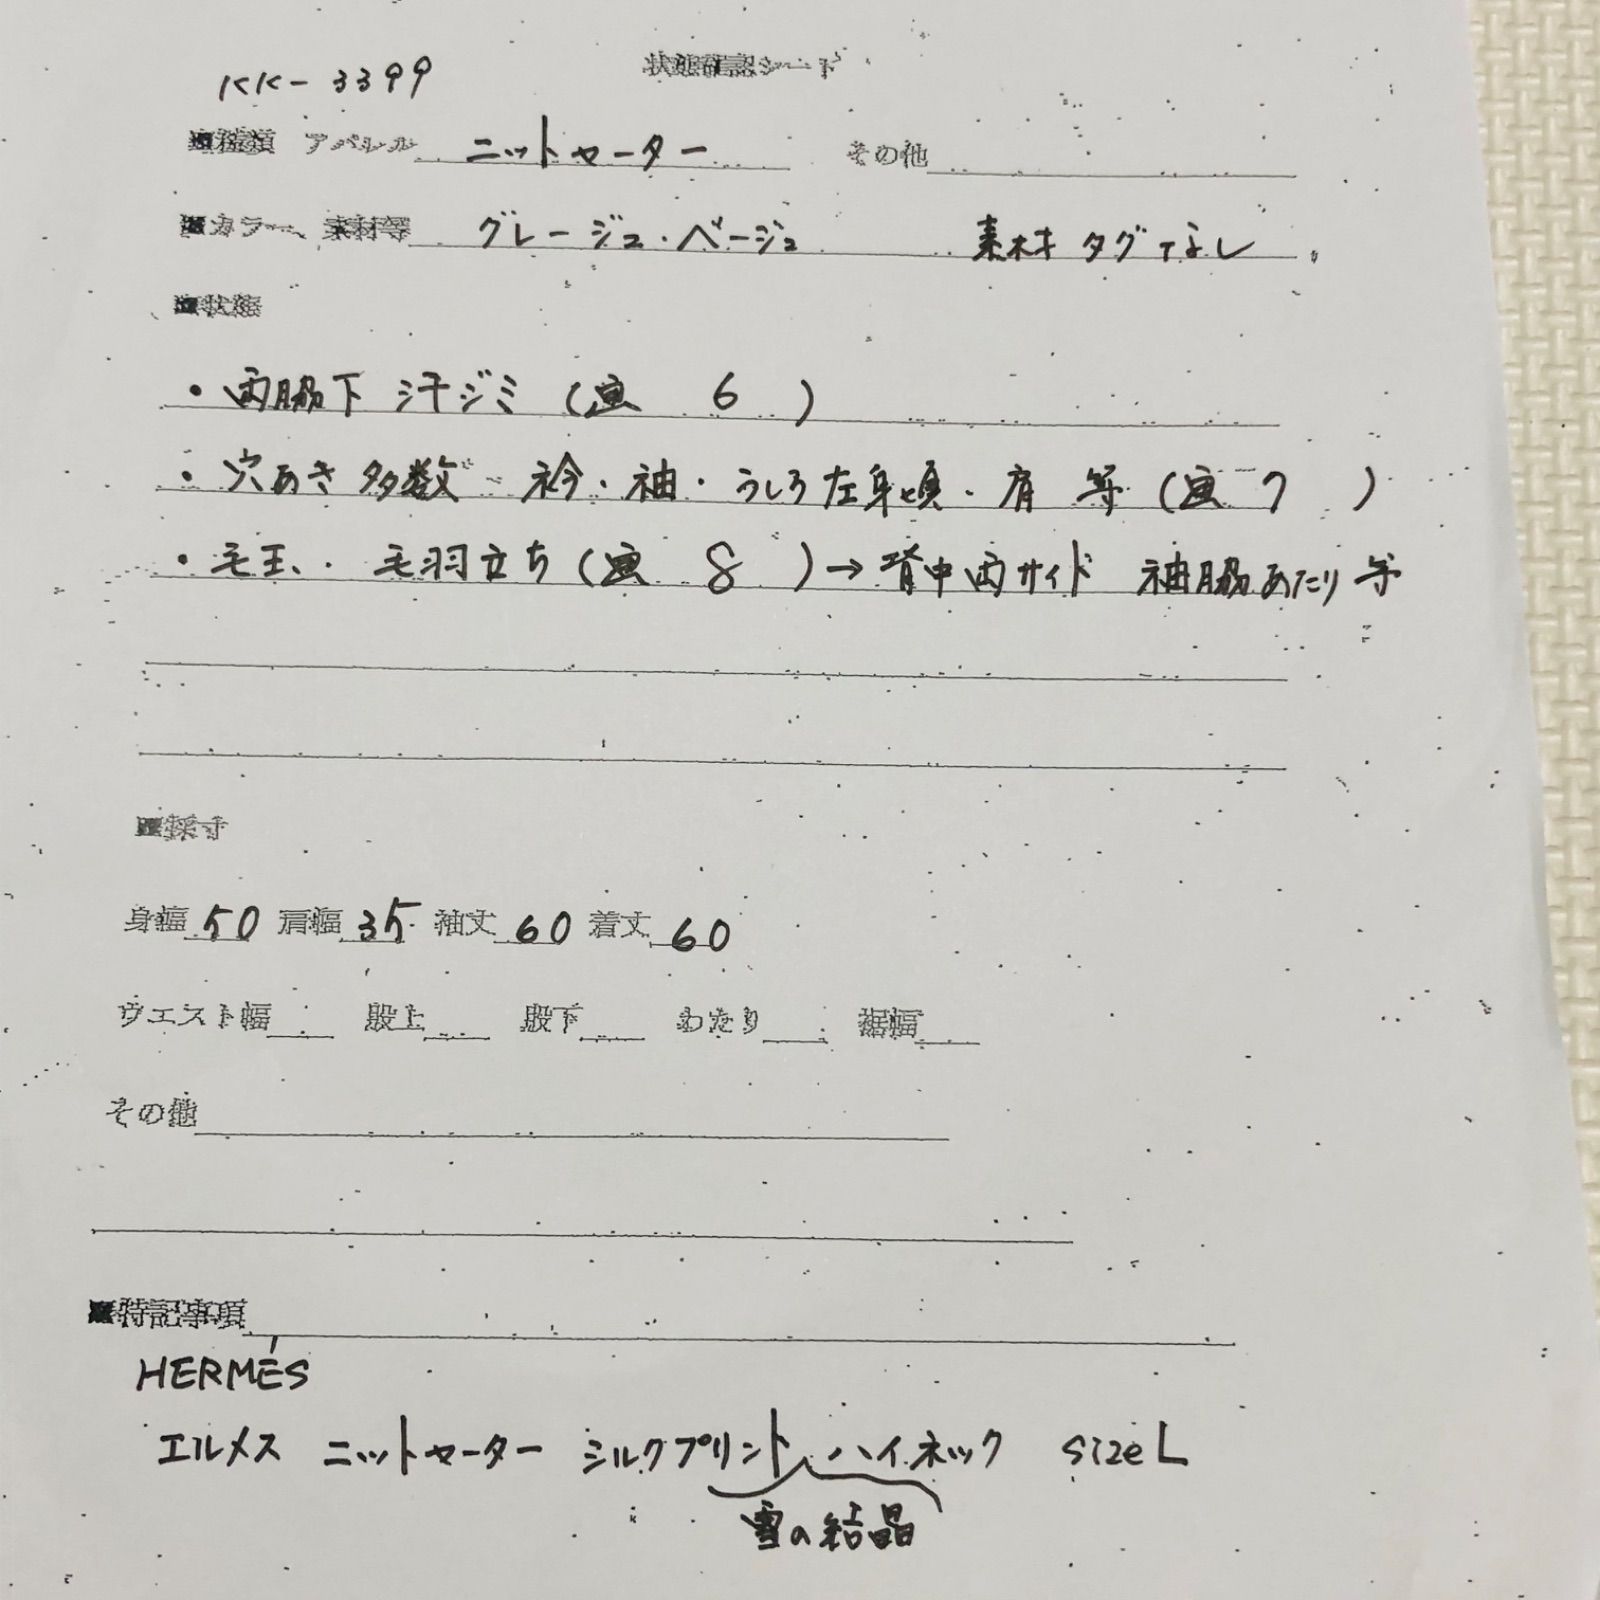 状態確認シート
KK-3399
■種類 アパレル ニットセーター その他
■カラー、素材等 グレージュ・ベージュ 素材タグなし
■状態
・両脇下 汗ジミ (画 6 )
・穴あき多数 衿・袖・うしろ左身頃・肩 等 (画 7 )
・毛玉・毛羽立ち (画 8 )→背中両サイド 袖脇あたり 等
■採寸
身幅 50 肩幅 35 袖丈 60 着丈 60
ウエスト幅 股上 股下 わたり 裾幅
その他
■特記事項
HERMÉS
エルメス ニットセーター シルクプリント ハイネック size L
雪の結晶